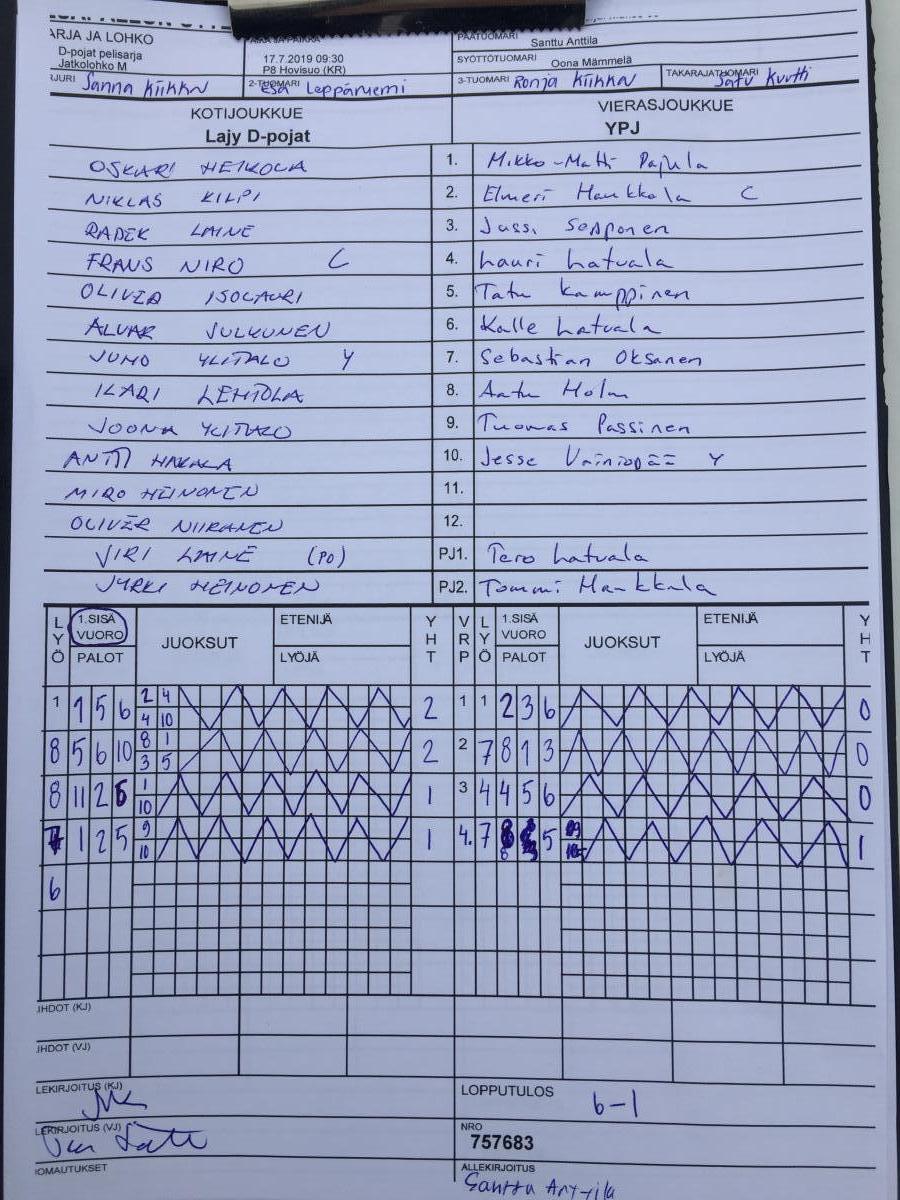 ARJA JA LOHKO
D-pojat pelisarja
Jatkolohko M
17.7.2019 09:30
P8 Hovisuo (KR)
PÄÄTUOMARI Santtu Anttila
SYÖTTÖTUOMARI Oona Mämmelä
JURI Sanna Kiikka
2-TUOMARI Esa Leppäniemi
3-TUOMARI Ronja Kiikka
TAKARAJATUOMARI Satu Kurtti
KOTIJOUKKUE VIERASJOUKKUE
Lajy D-pojat YPJ
OSKARI HEIKOLA 1. Mikko-Matti Pajula
NIKLAS KILPI 2. Elmeri Haukkala C
RADEK LAINE 3. Jussi Sepponen
FRANS NIRO C 4. Lauri Latvala
OLIVER ISOLAURI 5. Tatu Kamppinen
ALVAR JULKUNEN 6. Kalle Latvala
JUHO YLITALO Y 7. Sebastian Oksanen
ILARI LEHTOLA 8. Aatu Holm
JOONA YLITALO 9. Tuomas Passinen
ANTTI HAKALA 10. Jesse Vainiopää Y
MIRO HEINONEN 11.
OLIVER NIIRANEN 12.
VIRI LAINE (PO) PJ1. Tero Latvala
JYRKI HEINONEN PJ2. Tommi Haukkala
LYÖ 1.SISÄ VUORO JUOKSUT ETENIJÄ YHT VRP LYÖ 1.SISÄ VUORO JUOKSUT ETENIJÄ YHT
PALOT LYÖJÄ PALOT LYÖJÄ
1 1 5 6 2 4 2 1 1 2 3 6 0
4 10
8 5 6 10 8 1 2 2 7 8 1 3 0
3 5
8 11 2 6 1 1 3 4 4 5 6 0
10
7 1 2 5 9 1 4. 7 8 5 1
10
6
IHDOT (KJ)
IHDOT (VJ)
LEKIRJOITUS (KJ) LOPPUTULOS 6-1
LEKIRJOITUS (VJ) NRO
757683
IOMAUTUKSET ALLEKIRJOITUS
Santtu Anttila